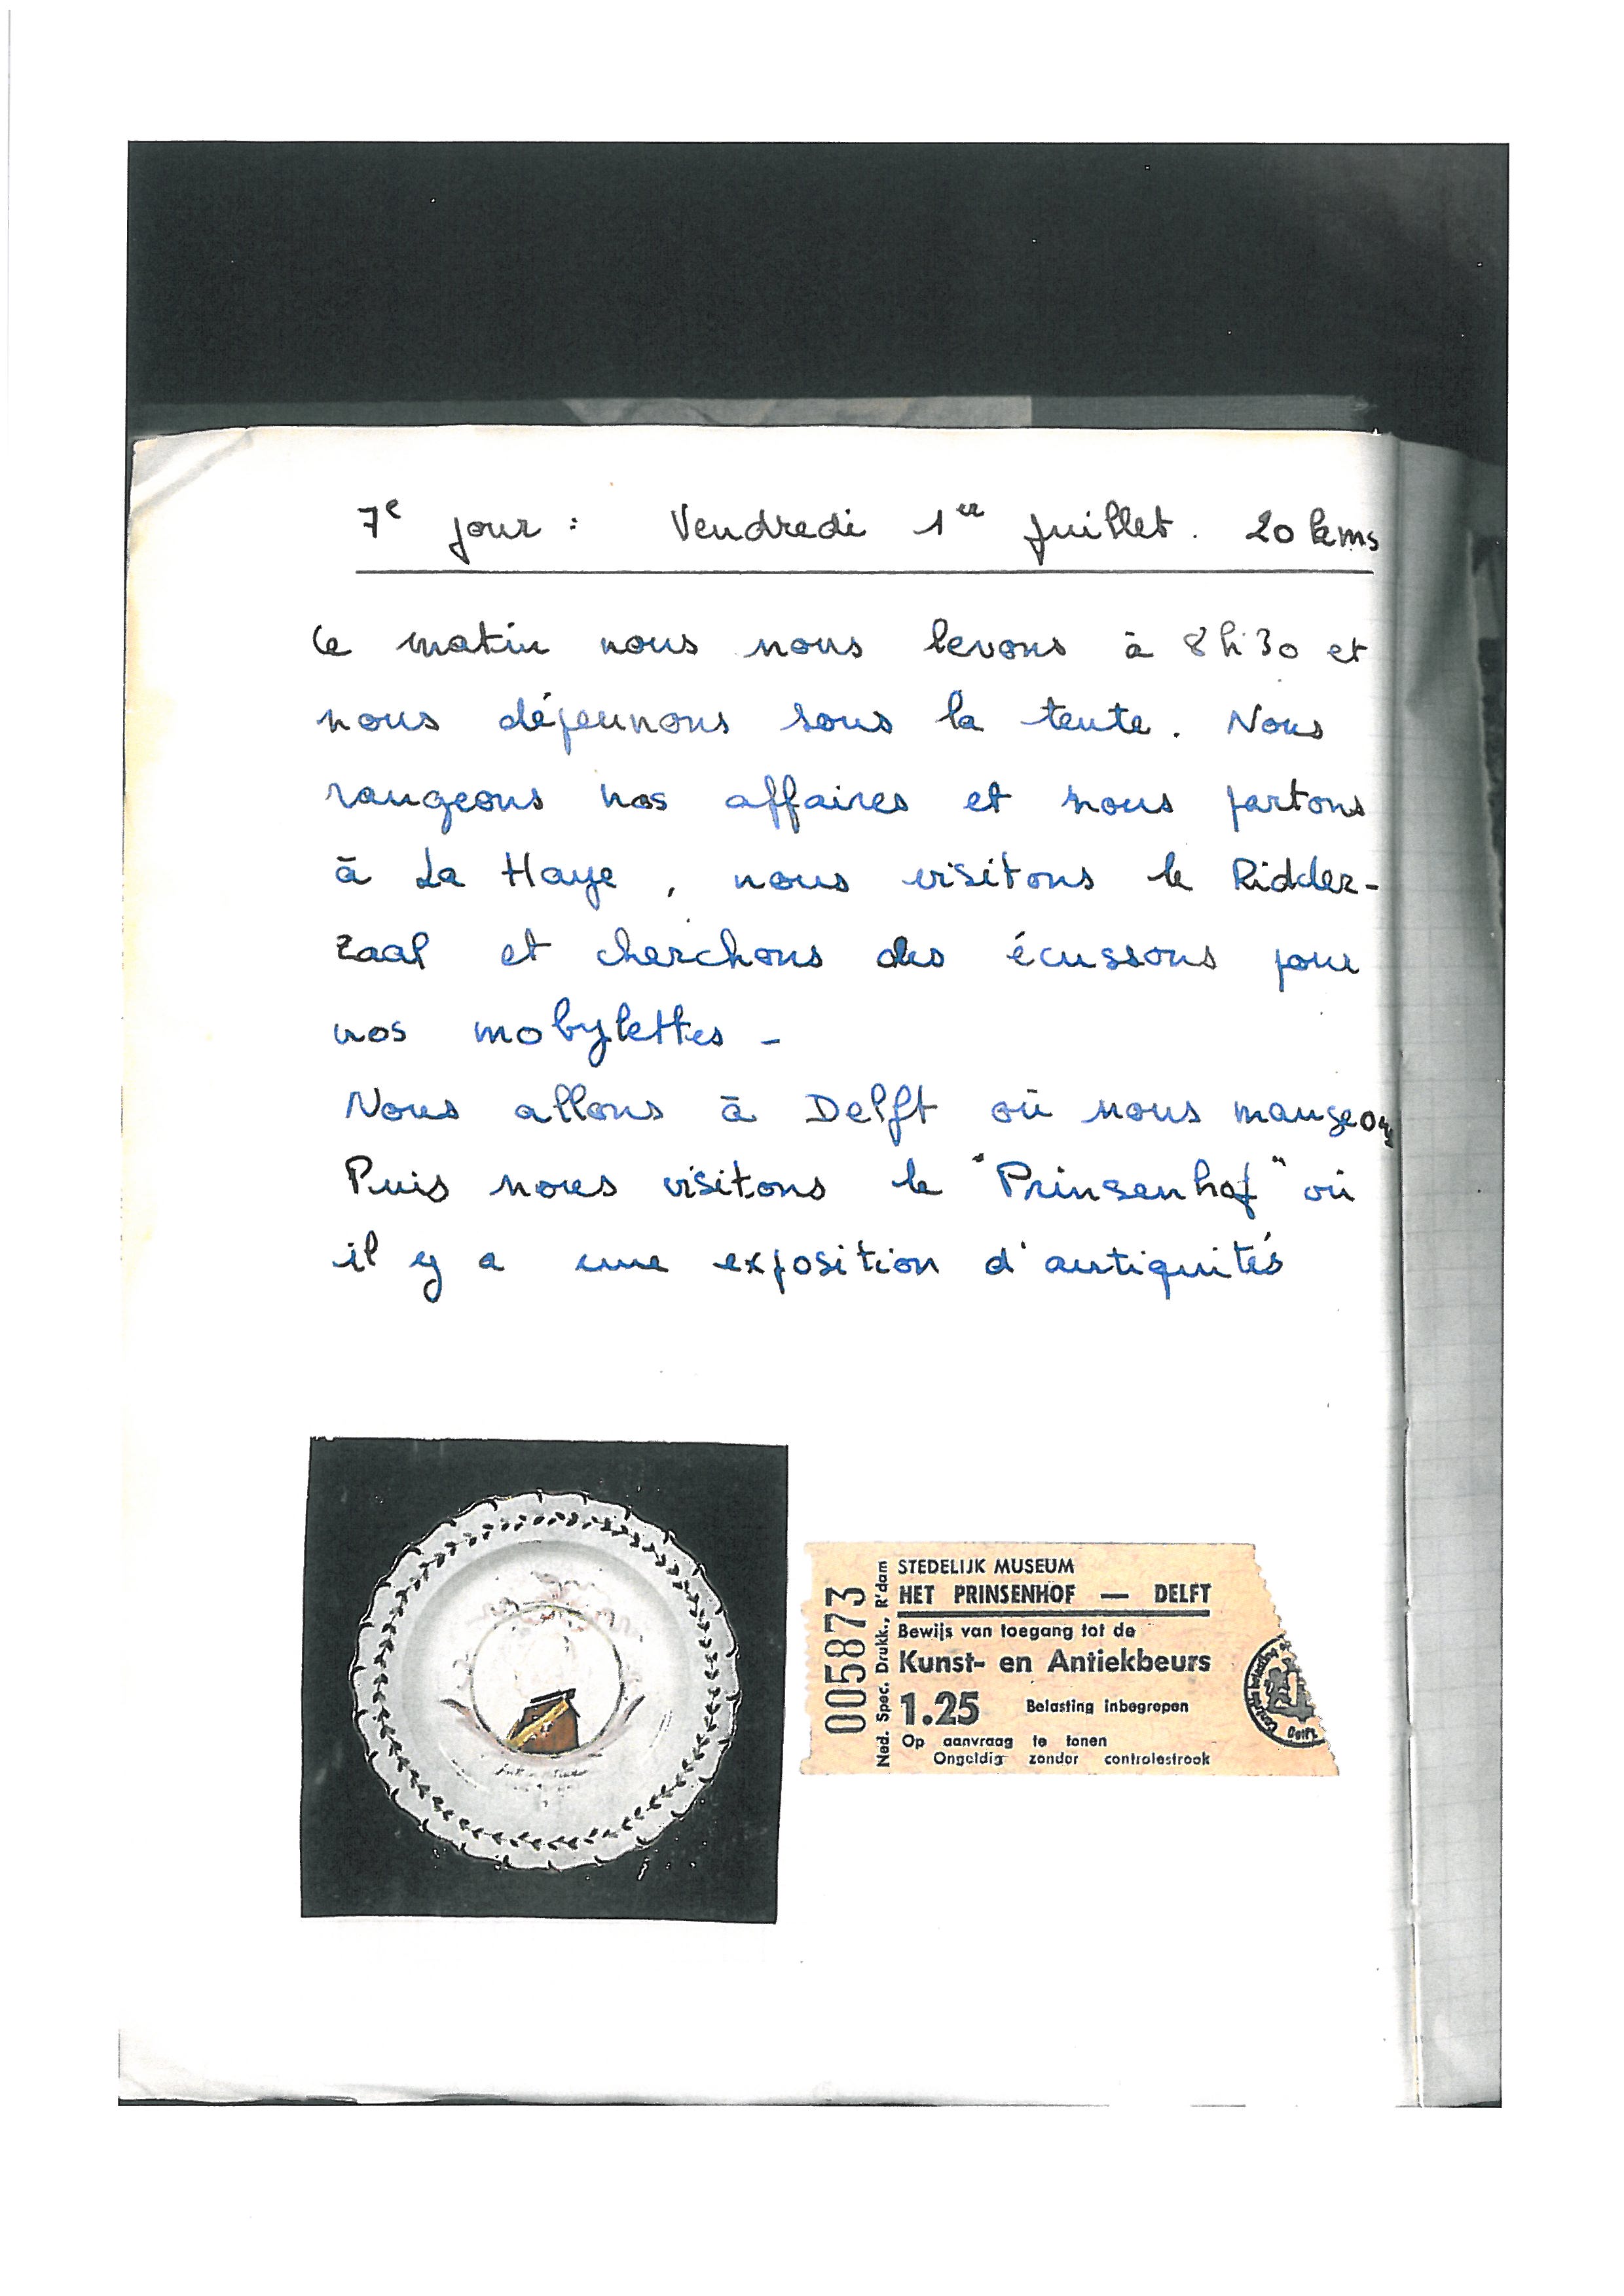 7e jour : Vendredi 1er juillet. 20 kms
Ce matin nous nous levons à 8h30 et
nous déjeunons sous la tente. Nous
rangeons nos affaires et nous partons
à La Haye, nous visitons le Ridder-
zaal et cherchons des écussons pour
nos mobylettes -
Nous allons à Delft où nous mangeons
Puis nous visitons le "Prinsenhof" où
il y a une exposition d'antiquités
005873
Ned. Spec. Drukk., R'dam
STEDELIJK MUSEUM
HET PRINSENHOF — DELFT
Bewijs van toegang tot de
Kunst- en Antiekbeurs
1.25 Belasting inbegrepen
Op aanvraag te tonen
Ongeldig zonder controlestrook
Delft